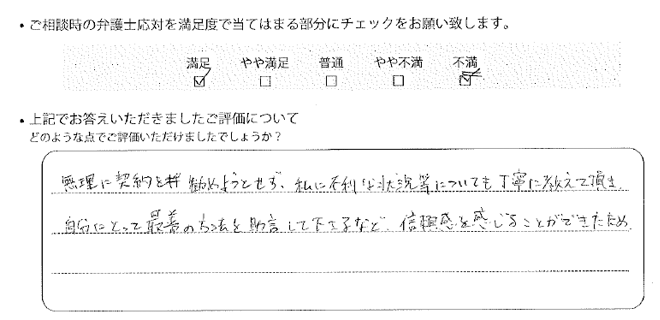 ・ご相談時の弁護士応対を満足度で当てはまる部分にチェックをお願い致します。
満足 やや満足 普通 やや不満 不満
☑ □ □ □ ☑
・上記でお答えいただきましたご評価について
どのような点でご評価いただけましたでしょうか？
無理に契約を勧めようとせず、私に不利な状況等についても丁寧に教えて頂き
自分にとって最善の方法を助言して下さるなど、信頼感を感じることができたため